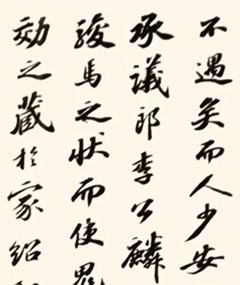 不遇矣而人少安
承議郎李公麟
駿馬之狀而使鬼
効之藏於家紹